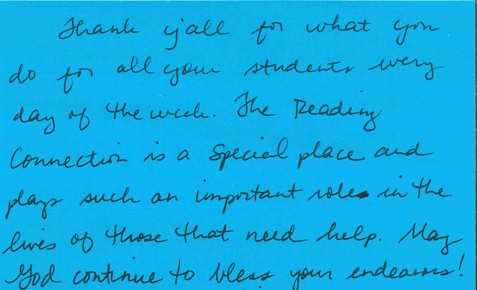 Thank y'all for what you
do for all your students every
day of the week. The Reading
Connection is a special place and
plays such an important role in the
lives of those that need help. May
God continue to bless your endeavors!